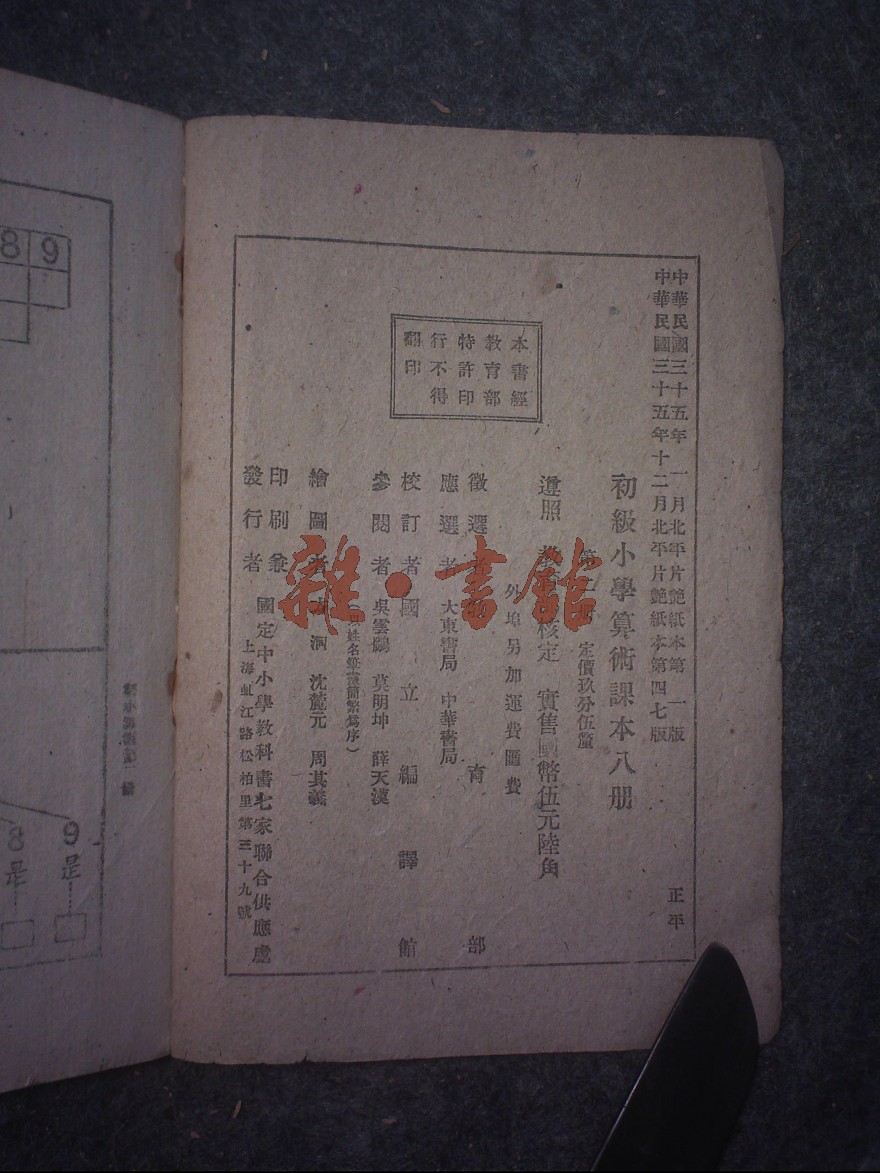 中華民國三十五年一月北平片艶紙本第一版
中華民國三十五年十二月北平片艶紙本第四七版
正平
初級小學算術課本八册
第二
定價玖分伍釐
遵照
核定
實售國幣伍元陸角
外埠另加運費匯費
本書經
教育部
特許印
行不得
翻印
徵選者
育部
應選者
大東書局
中華書局
校訂者國立編譯館
參閱者
吳雲鵬
莫明坤
薛天漢
姓名筆畫簡繁爲序）
繪圖者
沈麓元
周其義
印刷兼
發行者
國定中小學教科書七家聯合供應處
上海虹江路松柏里第三十九號
雜·書館
8 9
8 9
是 是